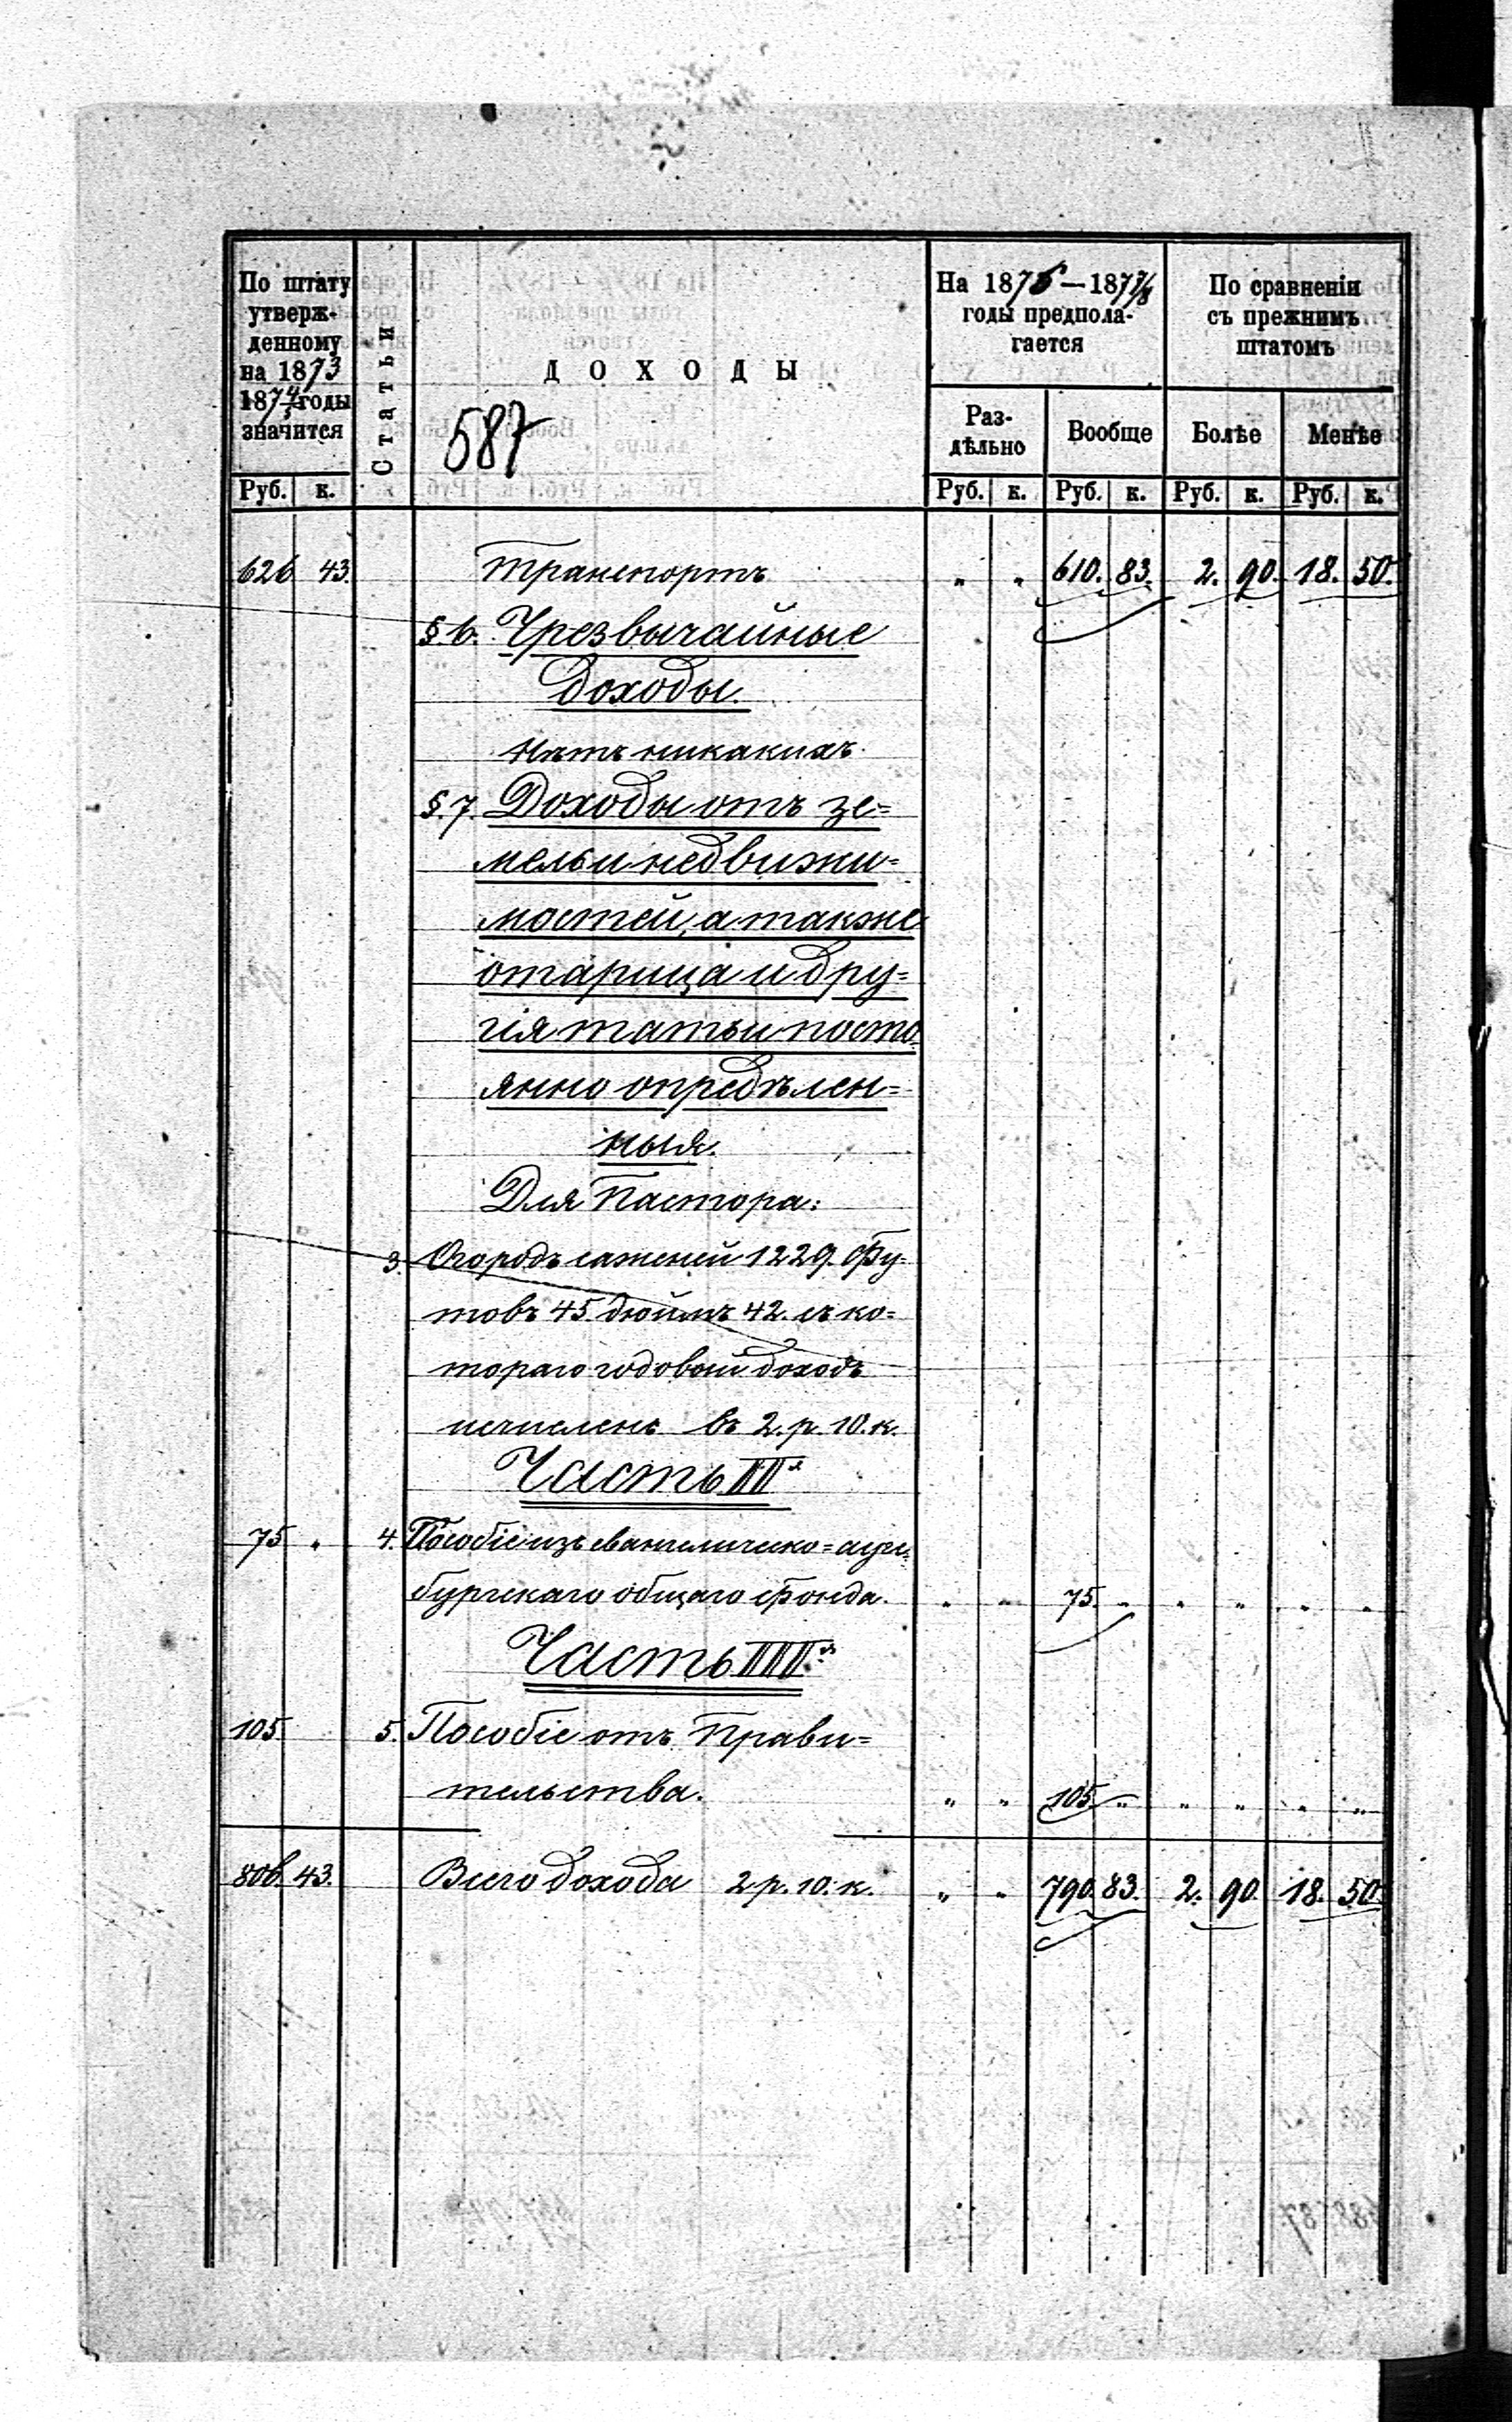 По штату
утверж-
денному
на 1873
187 4/5 годы
значится
Статьи
ДОХОДЫ
587
На 1875—187 7/8
годы предпола-
гается
По сравненіи
съ прежнимъ
штатомъ
Раз-
дѣльно
Вообще
Болѣе
Менѣе
Руб. к. Руб. к. Руб. к. Руб. к. Руб. к.
626 43. Транспортъ „ „ 610. 83. 2. 90. 18. 50.
§. 6. Чрезвычайные
Доходы.
Нѣтъ никакихъ.
§. 7. Доходы отъ зе=
мель и недвижи=
мостей, а также
отарища и дру=
гія татьи посто
янно опредѣлен=
ныя.
Для Пастора:
3. Огородъ саженей 1229. Фу=
товъ 45. дюймъ 42. съ ко=
тораго годовый доходъ
исчисленъ въ 2. р. 10. к.
Часть II я
75 „ 4. Пособіе изъ евангелическо=аугс=
бургскаго общаго Фонда. „ „ 75. „ „ „ „ „
Часть III я
105. 5. Пособіе отъ Прави=
тельства. „ „ 105. „ „ „ „ „
806. 43. Всего дохода 2 р. 10. к. „ „ 790. 83. 2. 90. 18. 50.